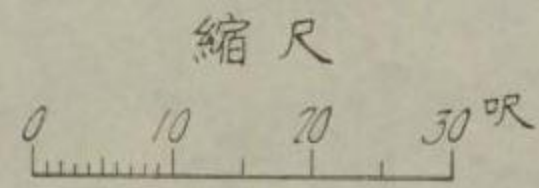 縮尺
0 10 20 30呎